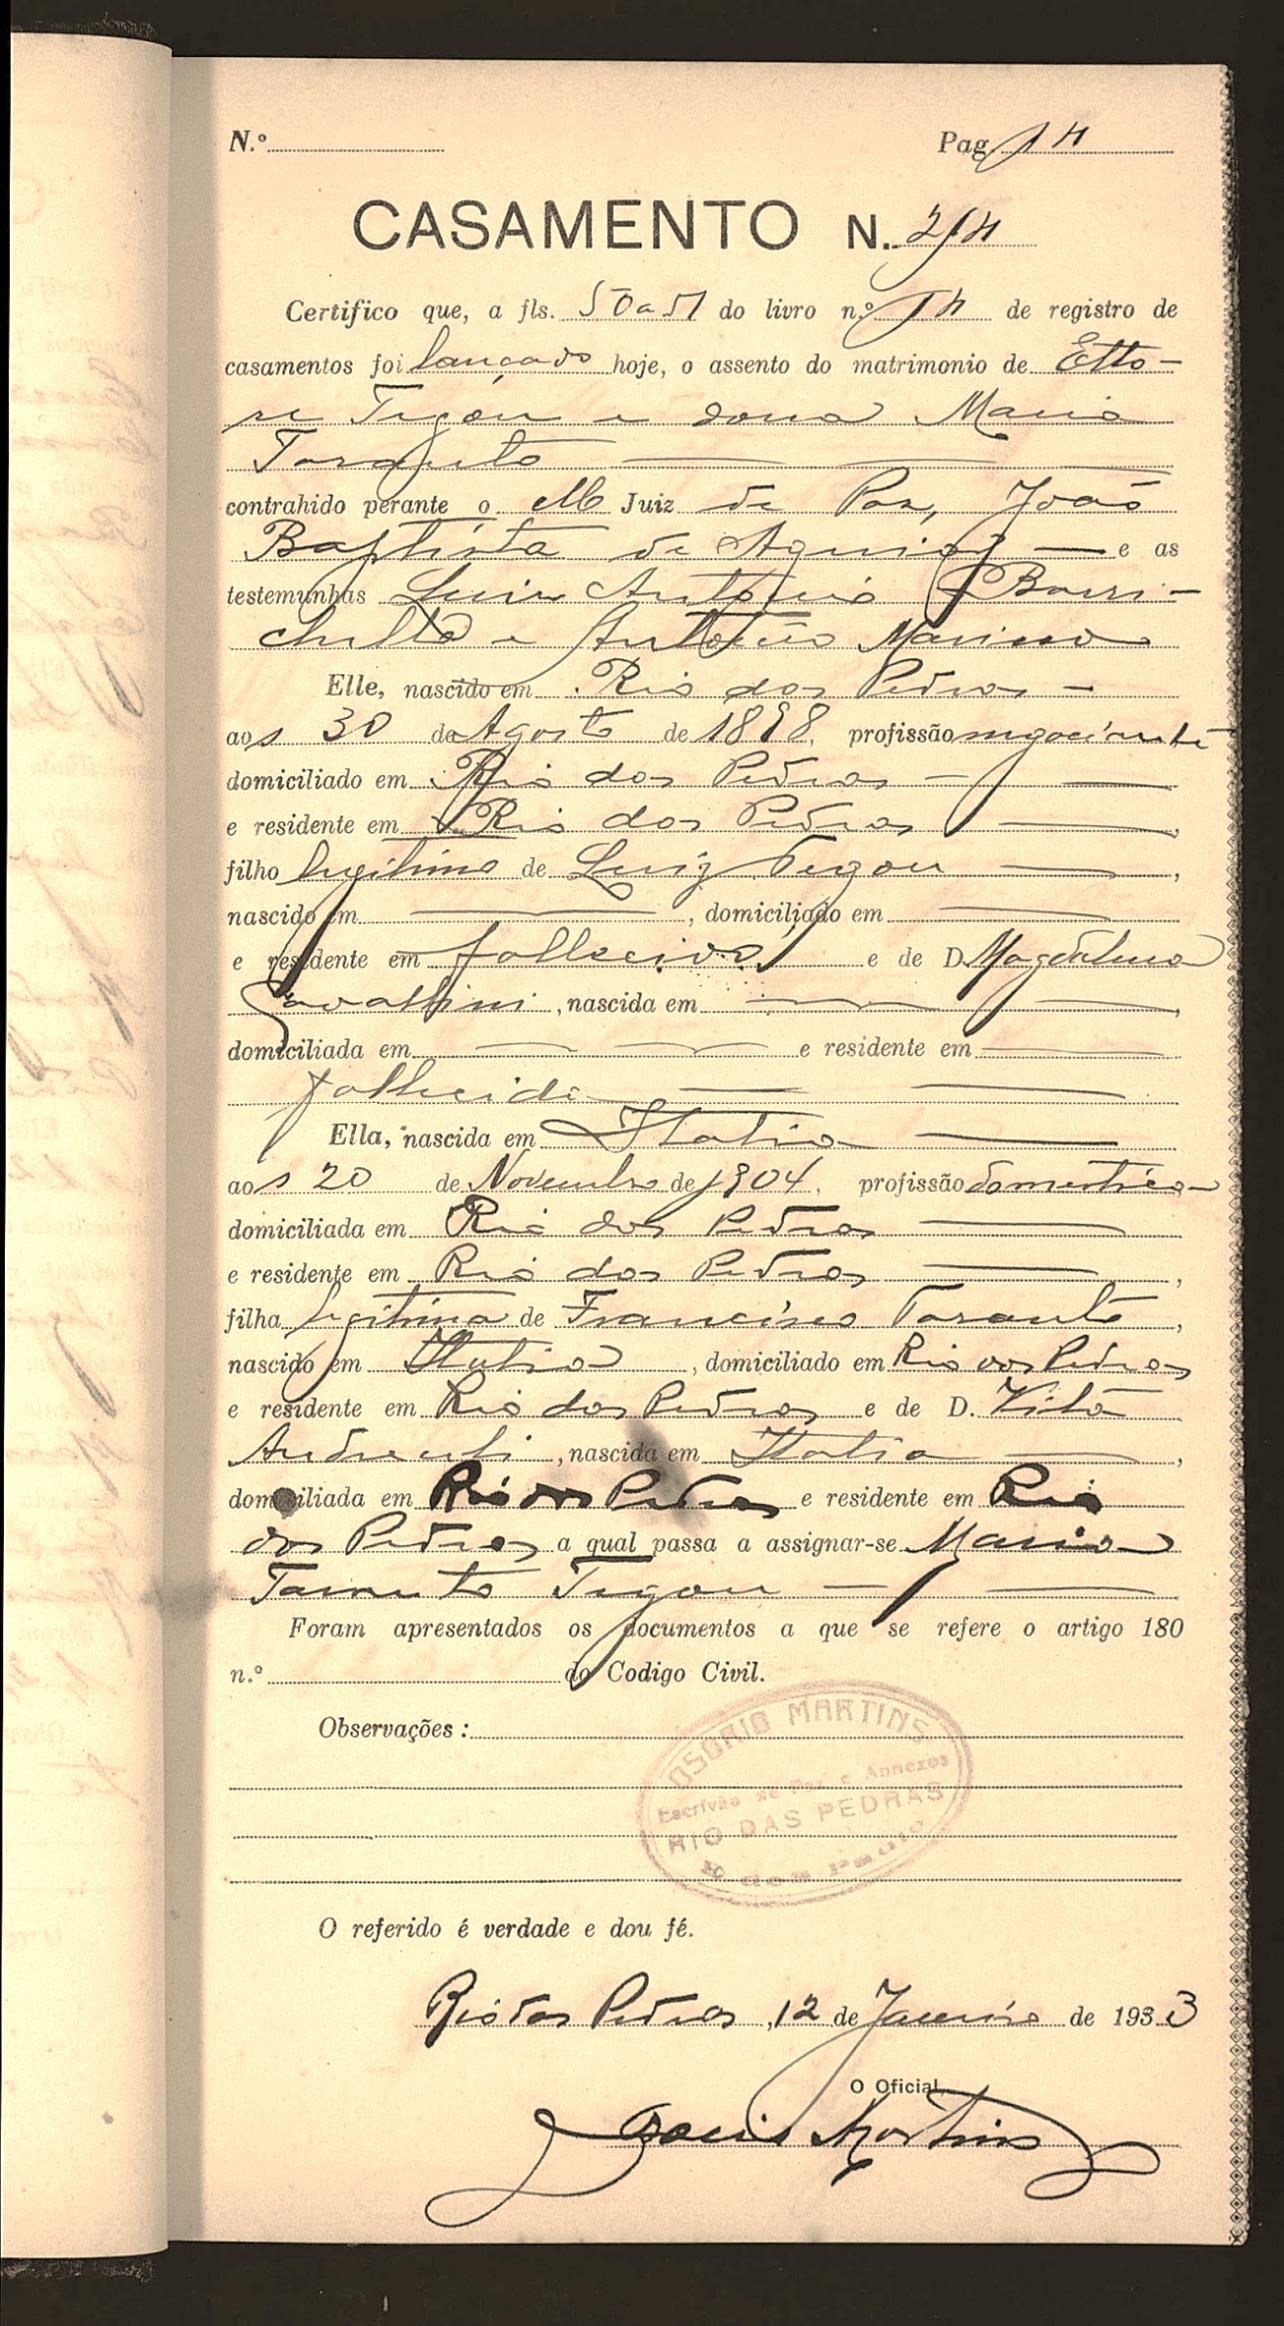 N.º Pag. 14
CASAMENTO N. 214
Certifico que, a fls. 50 a 51 do livro n.º 14 de registro de
casamentos foi lançado hoje, o assento do matrimonio de Etto-
re Tegon e dona Maria
Taranto
contrahido perante o M Juiz de Paz, João
Baptista de Aguiar e as
testemunhas Luiz Antonio Barri-
chello e Antonio Marino
Elle, nascido em Rio das Pedras
aos 30 de Agosto de 1898, profissão negociante
domiciliado em Rio das Pedras
e residente em Rio das Pedras,
filho legitimo de Luiz Tegon,
nascido em , domiciliado em
e residente em fallecido e de D. Magdalena
Cavallini, nascida em ,
domiciliada em e residente em
fallecida
Ella, nascida em Italia
aos 20 de Novembro de 1904, profissão domestica
domiciliada em Rio das Pedras
e residente em Rio das Pedras,
filha legitima de Francisco Taranto,
nascido em Italia, domiciliado em Rio das Pedras
e residente em Rio das Pedras e de D. Vita
, nascida em Italia,
domiciliada em Rio das Pedras e residente em Rio
das Pedras a qual passa a assignar-se Maria
Taranto Tegon
Foram apresentados os documentos a que se refere o artigo 180
n.º do Codigo Civil.
Observações :
OSORIO MARTINS
Escrivão de Paz e Annexos
RIO DAS PEDRAS
E. de S. Paulo
O referido é verdade e dou fé.
Rio das Pedras, 12 de Janeiro de 1933
O Oficial,
Osorio Martins